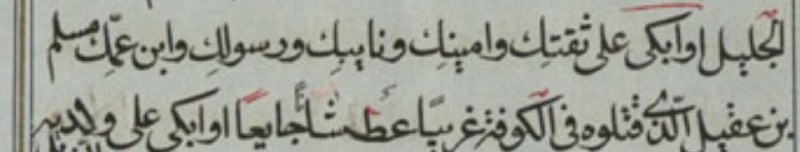 الجليل او ابكى على ثقتك وامينك ونايبك ورسولك وابن عمك مسلم
بن عقيل الذى قتلوه فى الكوفة غريبًا عطشانًا جايعًا او ابكى على ولديه